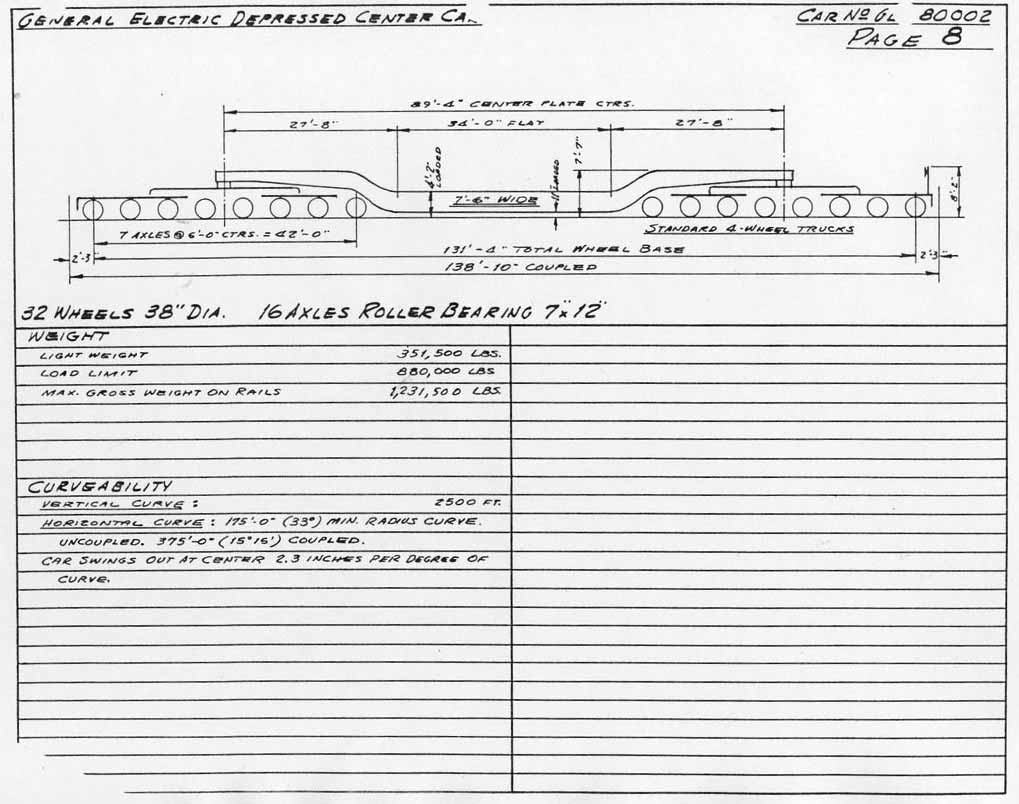 GENERAL ELECTRIC DEPRESSED CENTER CA.
CAR Nº GL 80002
PAGE 8
89'-4" CENTER PLATE CTRS.
27'-8" 34'-0" FLAT 27'-8"
4'-2" LOADED
7'-7"
8'-2"
7'-6" WIDE
7 AXLES @ 6'-0" CTRS. = 42'-0"
STANDARD 4-WHEEL TRUCKS
131'-4" TOTAL WHEEL BASE
2'-3" 2'-3"
138'-10" COUPLED
32 WHEELS 38" DIA. 16 AXLES ROLLER BEARING 7"x12"
WEIGHT
LIGHT WEIGHT 351,500 LBS.
LOAD LIMIT 880,000 LBS
MAX. GROSS WEIGHT ON RAILS 1,231,500 LBS.
CURVEABILITY
VERTICAL CURVE: 2500 FT.
HORIZONTAL CURVE: 175'-0" (33°) MIN. RADIUS CURVE.
UNCOUPLED. 375'-0" (15°16') COUPLED.
CAR SWINGS OUT AT CENTER 2.3 INCHES PER DEGREE OF
CURVE.